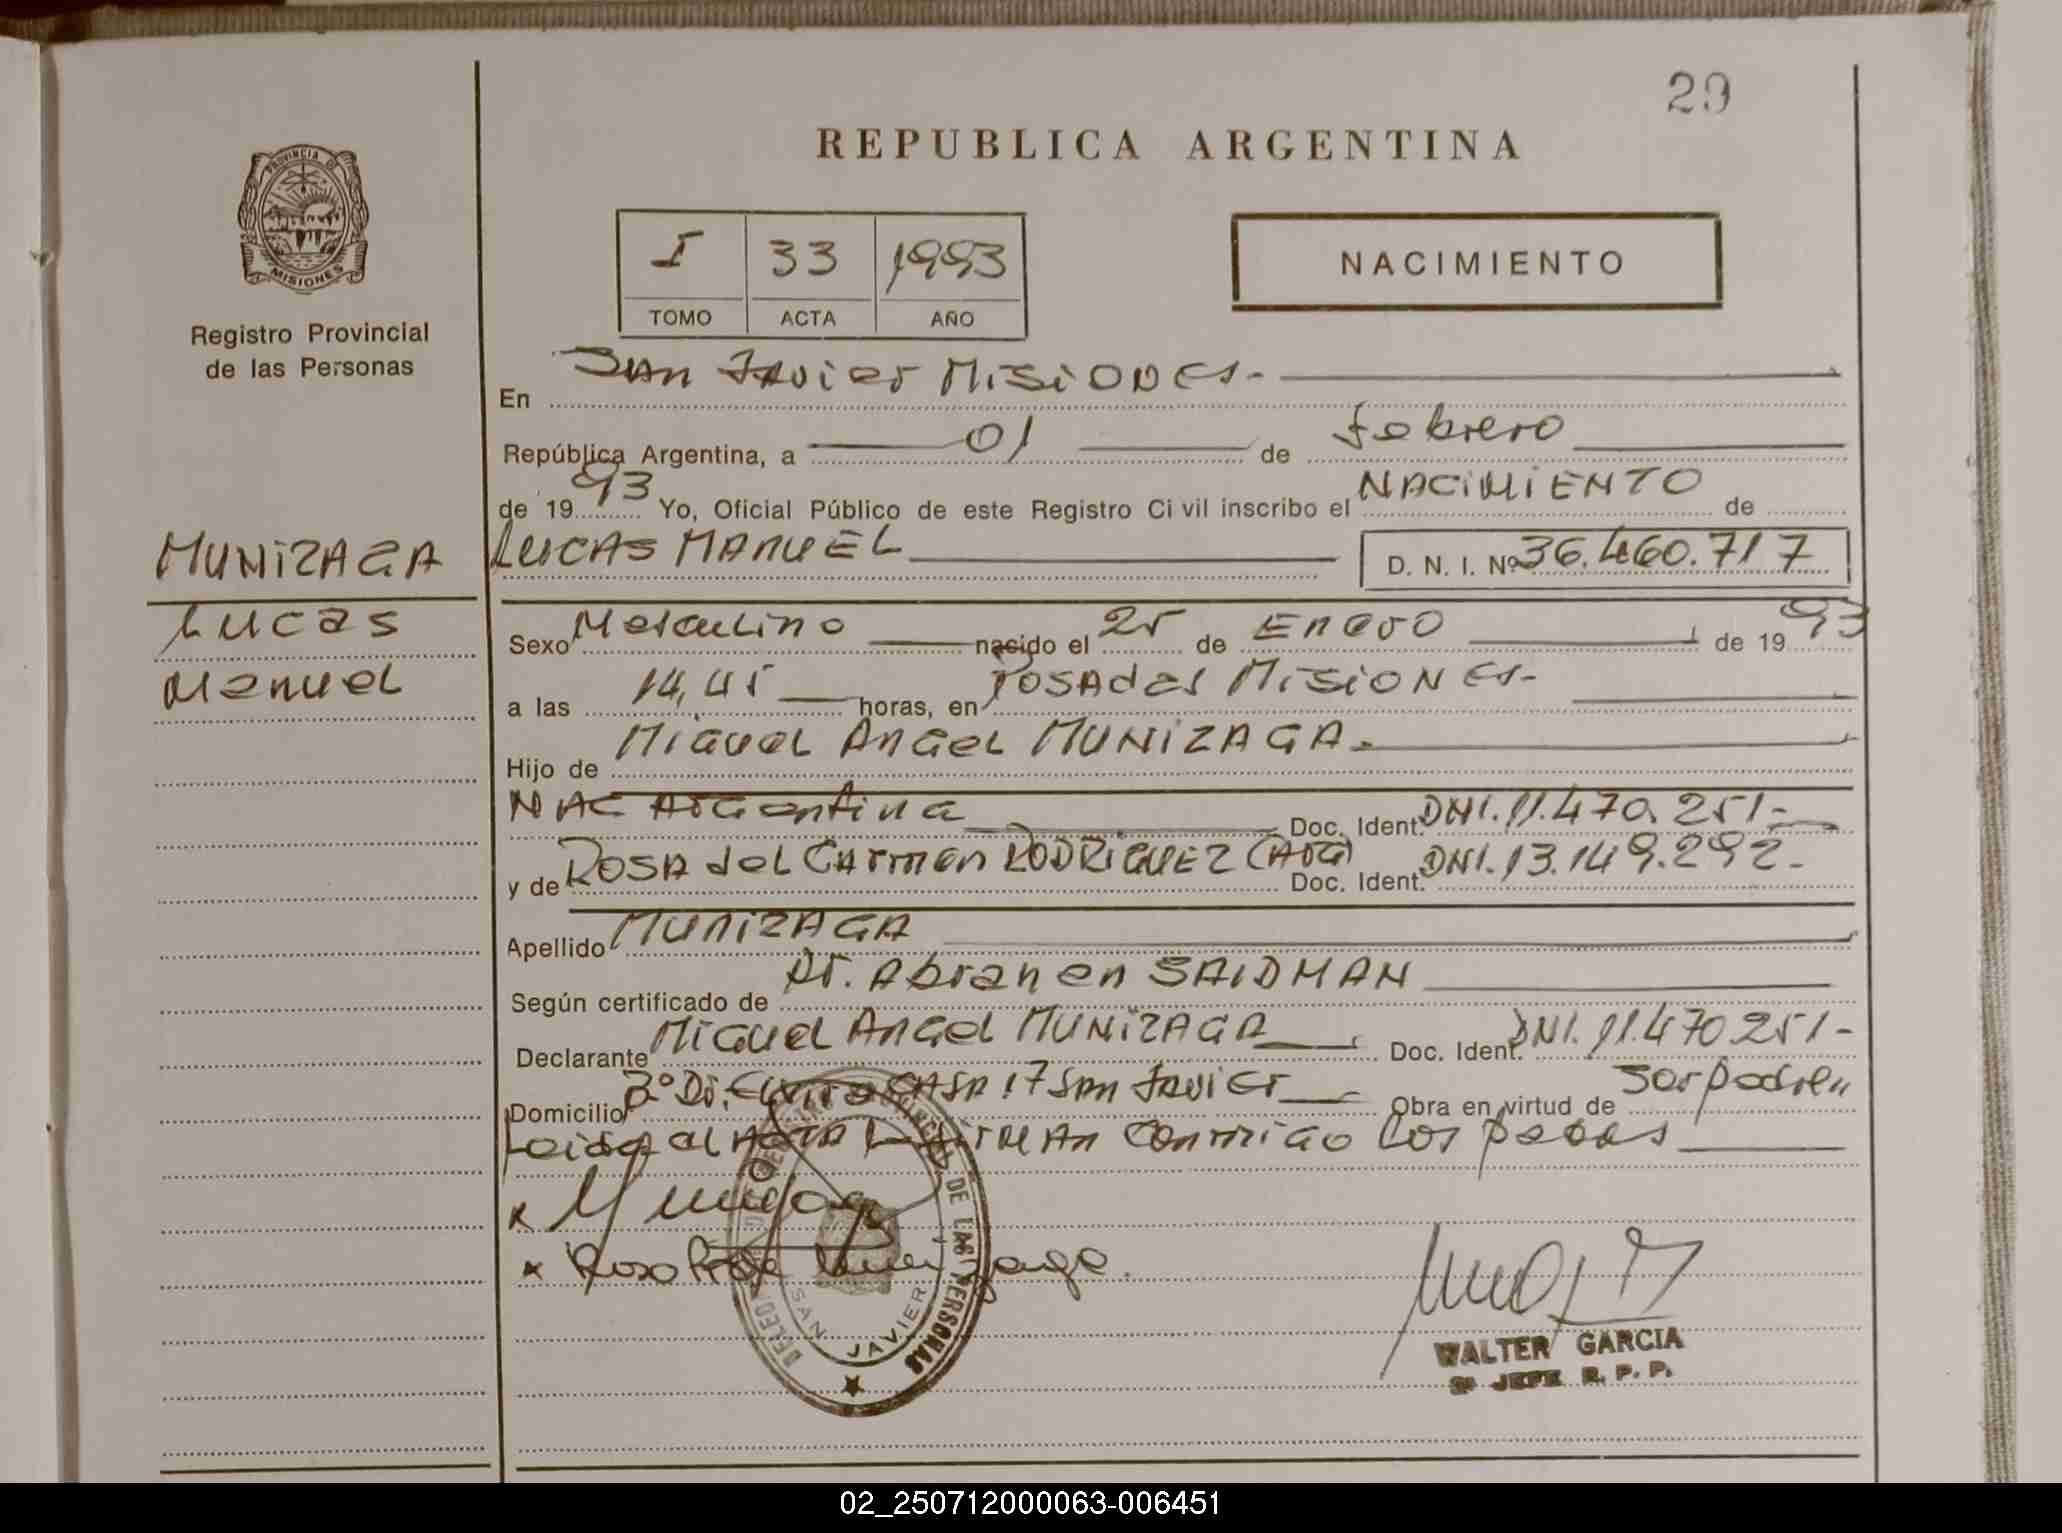 29
REPUBLICA ARGENTINA
PROVINCIA DE
MISIONES
Registro Provincial
de las Personas
I 33 1993
TOMO ACTA AÑO
NACIMIENTO
En San Javier MISIONES.-
República Argentina, a 01 de febrero
de 1993 Yo, Oficial Público de este Registro Civil inscribo el NACIMIENTO de
MUNIZAGA
Lucas
Manuel
LUCAS MANUEL D. N. I. Nº 36.460.717
Sexo Masculino nacido el 25 de Enero de 1993
a las 14,45 horas, en Posadas MISIONES.-
Hijo de Miguel Angel MUNIZAGA.-
NAC Argentina Doc. Ident. DNI. 11.470.251-
y de ROSA del Carmen RODRIGUEZ (ARG) Doc. Ident. DNI. 13.149.292-
Apellido MUNIZAGA
Según certificado de Dr. SAIDMAN
Declarante Miguel Angel MUNIZAGA Doc. Ident. DNI. 11.470251-
Domicilio CASA 17 San Javier Obra en virtud de
Leida el ACTA conmigo los
DE LAS PERSONAS
SAN JAVIER
WALTER GARCIA
2º JEFE R. P. P.
02_250712000063-006451